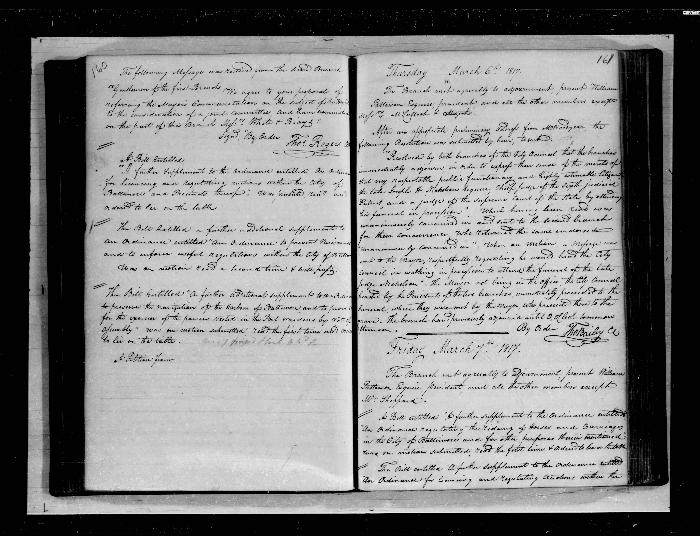 160
The following Message was received from the second Branch
"Gentlemen of the first Branch. We agree to your proposal of
referring the Mayors Communications on the subject of
to the consideration of a joint committee and have
on the part of this Branch Messrs.
Signd. By Order
Thos. Rogers
A Bill Entitled
"A further Supplement to the ordinance entitled An Ordinance
for licensing and regulating auctions within the City of
Baltimore and Precincts thereof" Was
ordered to lie on the table.
The Bill Entitled a further additional supplement to
an Ordinance entitled "An Ordinance to prevent
and to inforce useful regulations within the City of
Was on motion read a second time &
The Bill Entitled "A further additional supplement to
to preserve the navigation of the harbor of Baltimore and
for the exercise of the powers vested in the Port wardens by
Assembly" was on motion submitted read the first time and
to lie on the table.
A Petition from
161
Thursday March 6th. 1817.
The Branch met agreeably to adjournment, present William
Patterson Esquire president and all the other members except
Messrs.
After an appropriate preliminary
following Resolution was submitted by him,
Resolved by both branches of the City Council that the branches
immediately adjourn in order to express their sense of the merits of
that very respectable public functionary and highly estimable citizen
the late Joseph H. Nicholson Esquire, chief judge of the sixth judicial
District and a judge of the supreme court of the State, by attending
his funeral in procession." Which having been read was
unanimously concurred in and sent to the second branch
for their concurrence who returned the same endorsed
"unanimously concurred in" When on motion a Message was
sent to the Mayor, respectfully requesting he would lead the City
Council in walking in procession to attend the funeral of the late
judge Nicholson. The Mayor not being in the office, the City Council
headed by the Presidents of the two branches, immediately proceeded to the
funeral, where they
The branch had previously adjourned until 3 Oclock tomorrow
afternoon.
By Order
Tho Bailey Ck
Friday March 7th. 1817.
The Branch met agreeably to adjournment, present William
Patterson Esquire, president and all the other members except
Mr. Sheppard.
A Bill entitled "A further supplement to the Ordinance entitled
An Ordinance regulating the of Horses and Carriages
in the City of Baltimore and for other purposes therein mentioned
was on motion submitted, read the first time & ordered to lie on the table
The Bill entitled A further supplement to the Ordinance entitled
An Ordinance for licensing and regulating Auctions within the